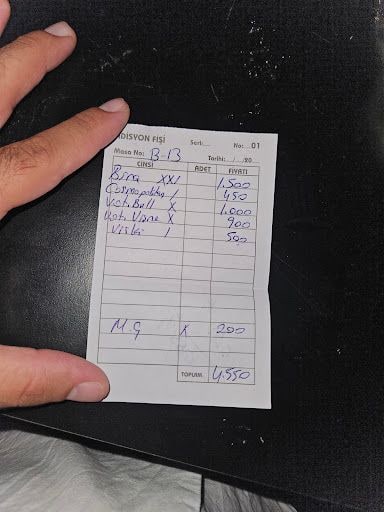 ADİSYON FİŞİ Seri:.... No: 01
Masa No: B-13 Tarihi: ../../20
CİNSİ ADET FİYATI
Bira XXI 1.500
Cosmopolitan I 450
Vot. Bull X 1.000
Vot. Visne X 900
Viski I 500
M.Ç X 200
TOPLAM 4.550